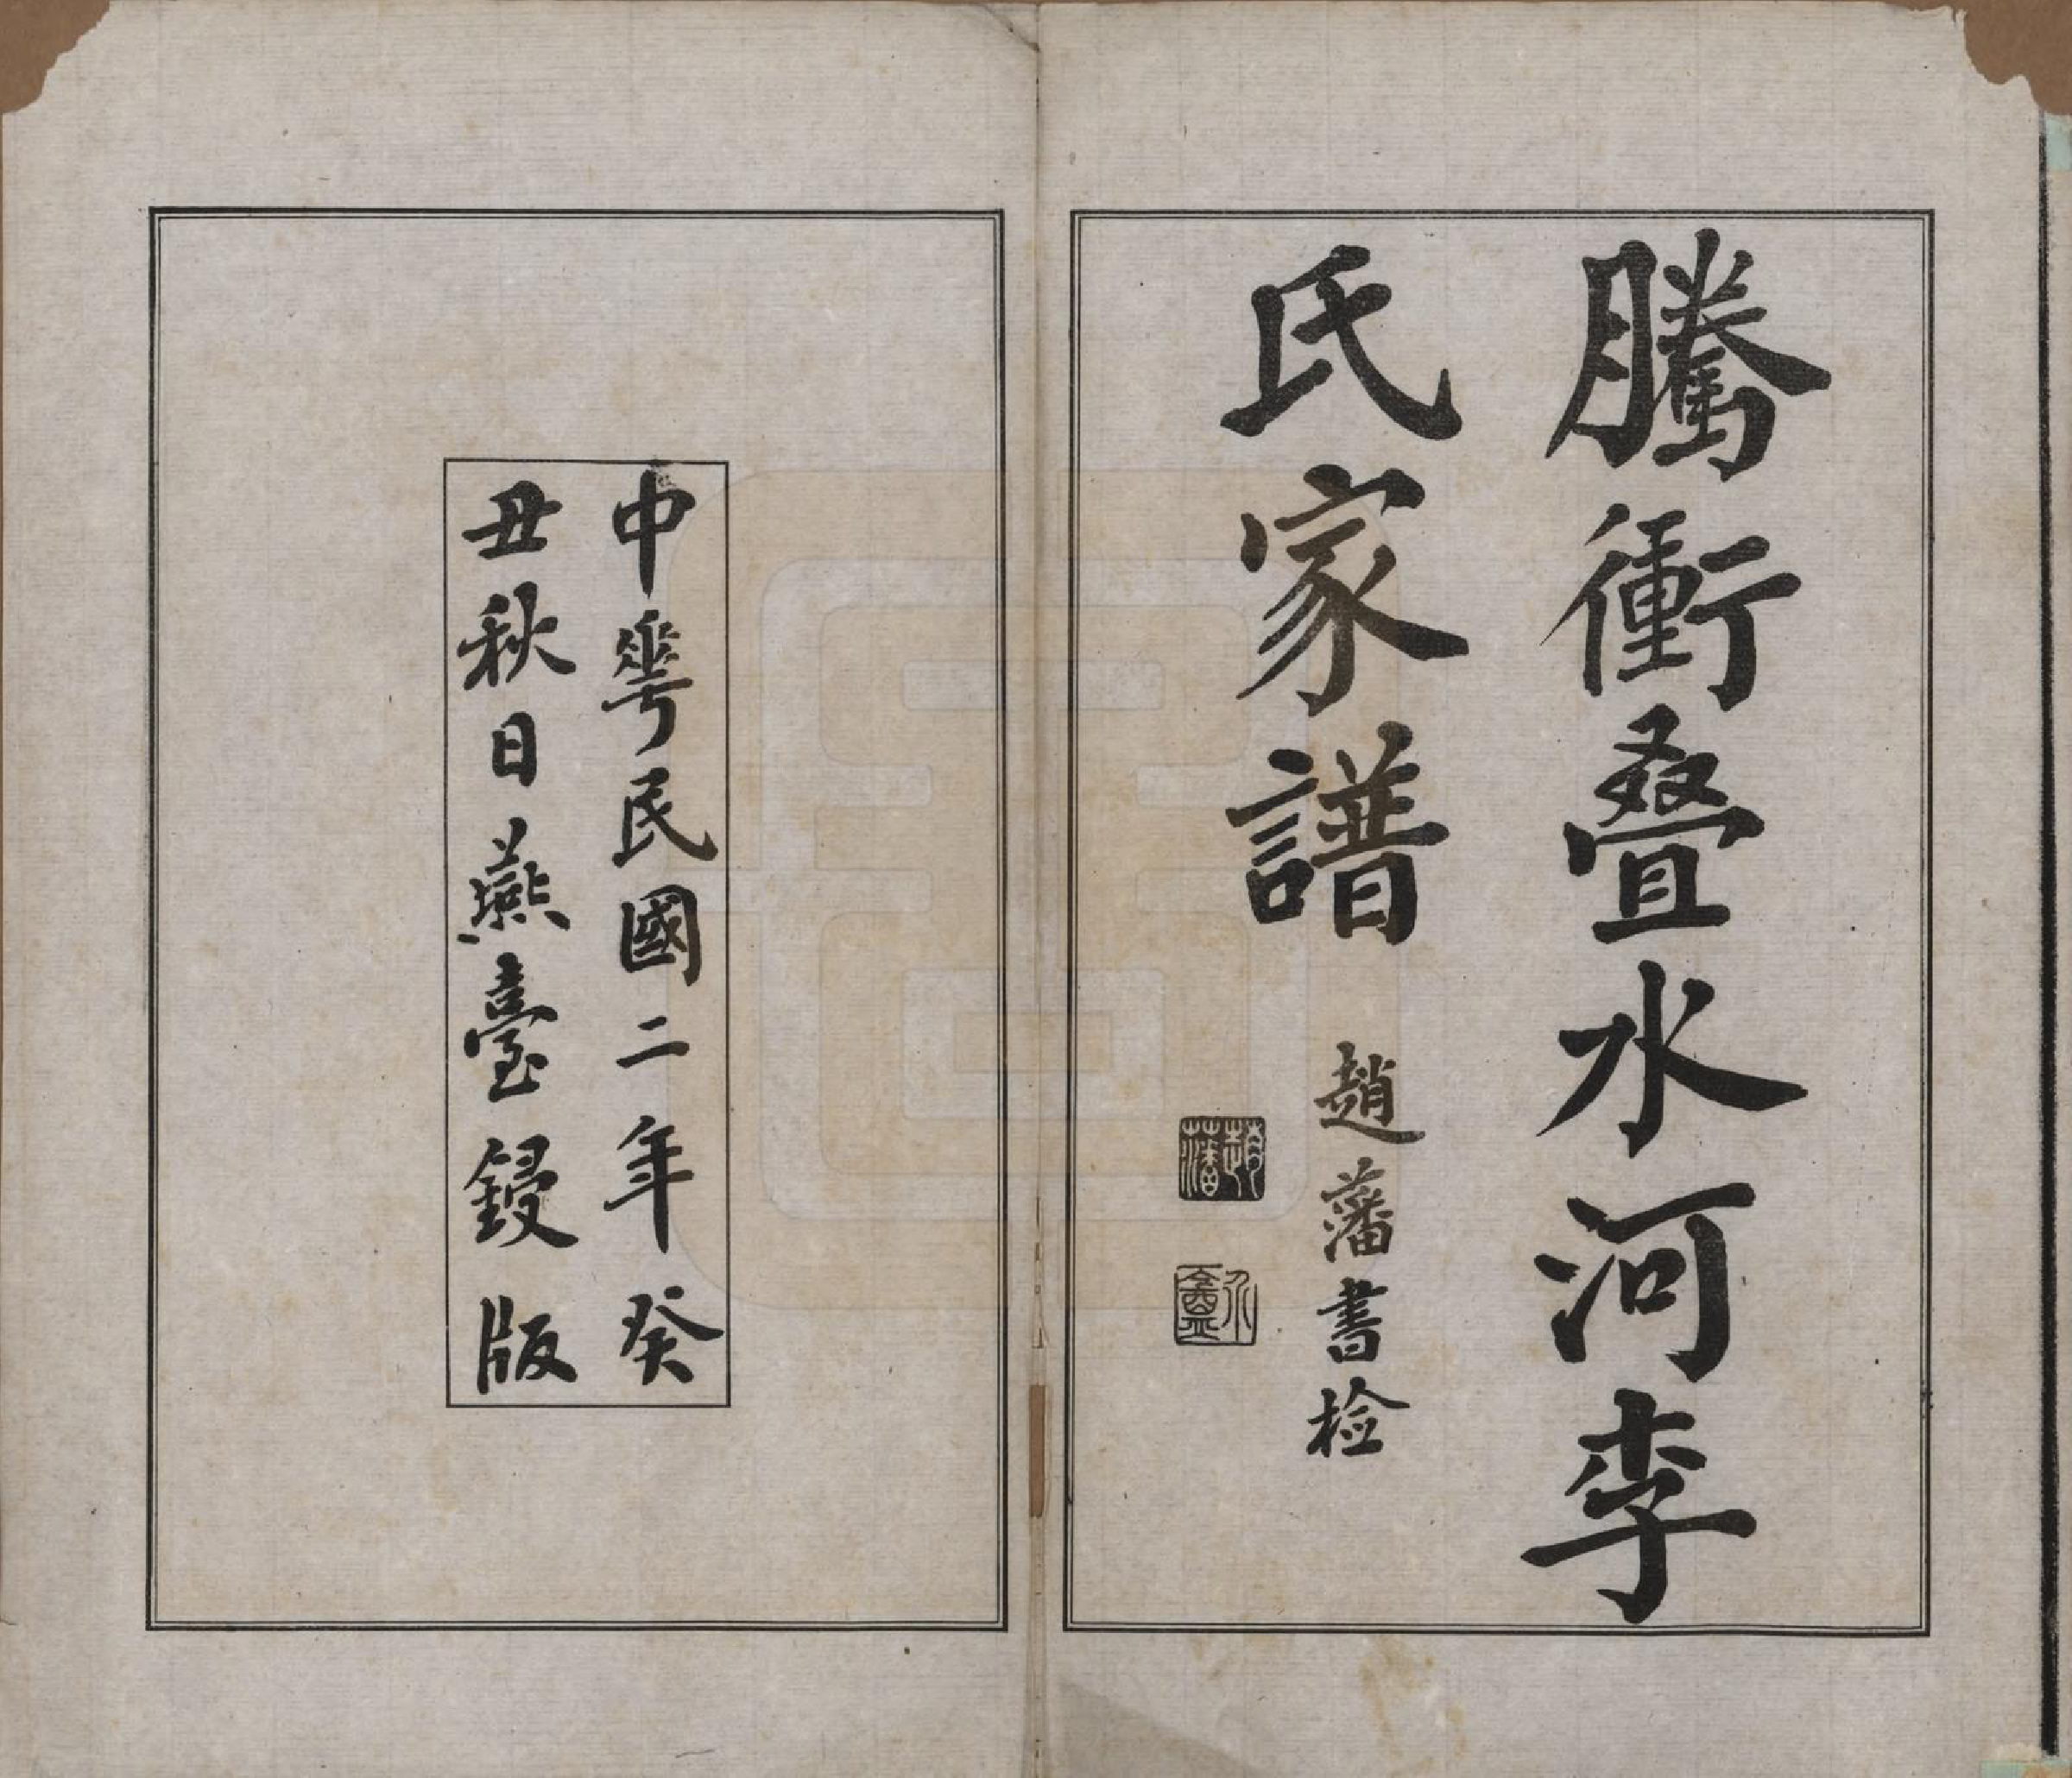 騰衝疊水河李
氏家譜
趙藩書檢
趙藩
中華民國二年癸
丑秋日燕臺鋟版